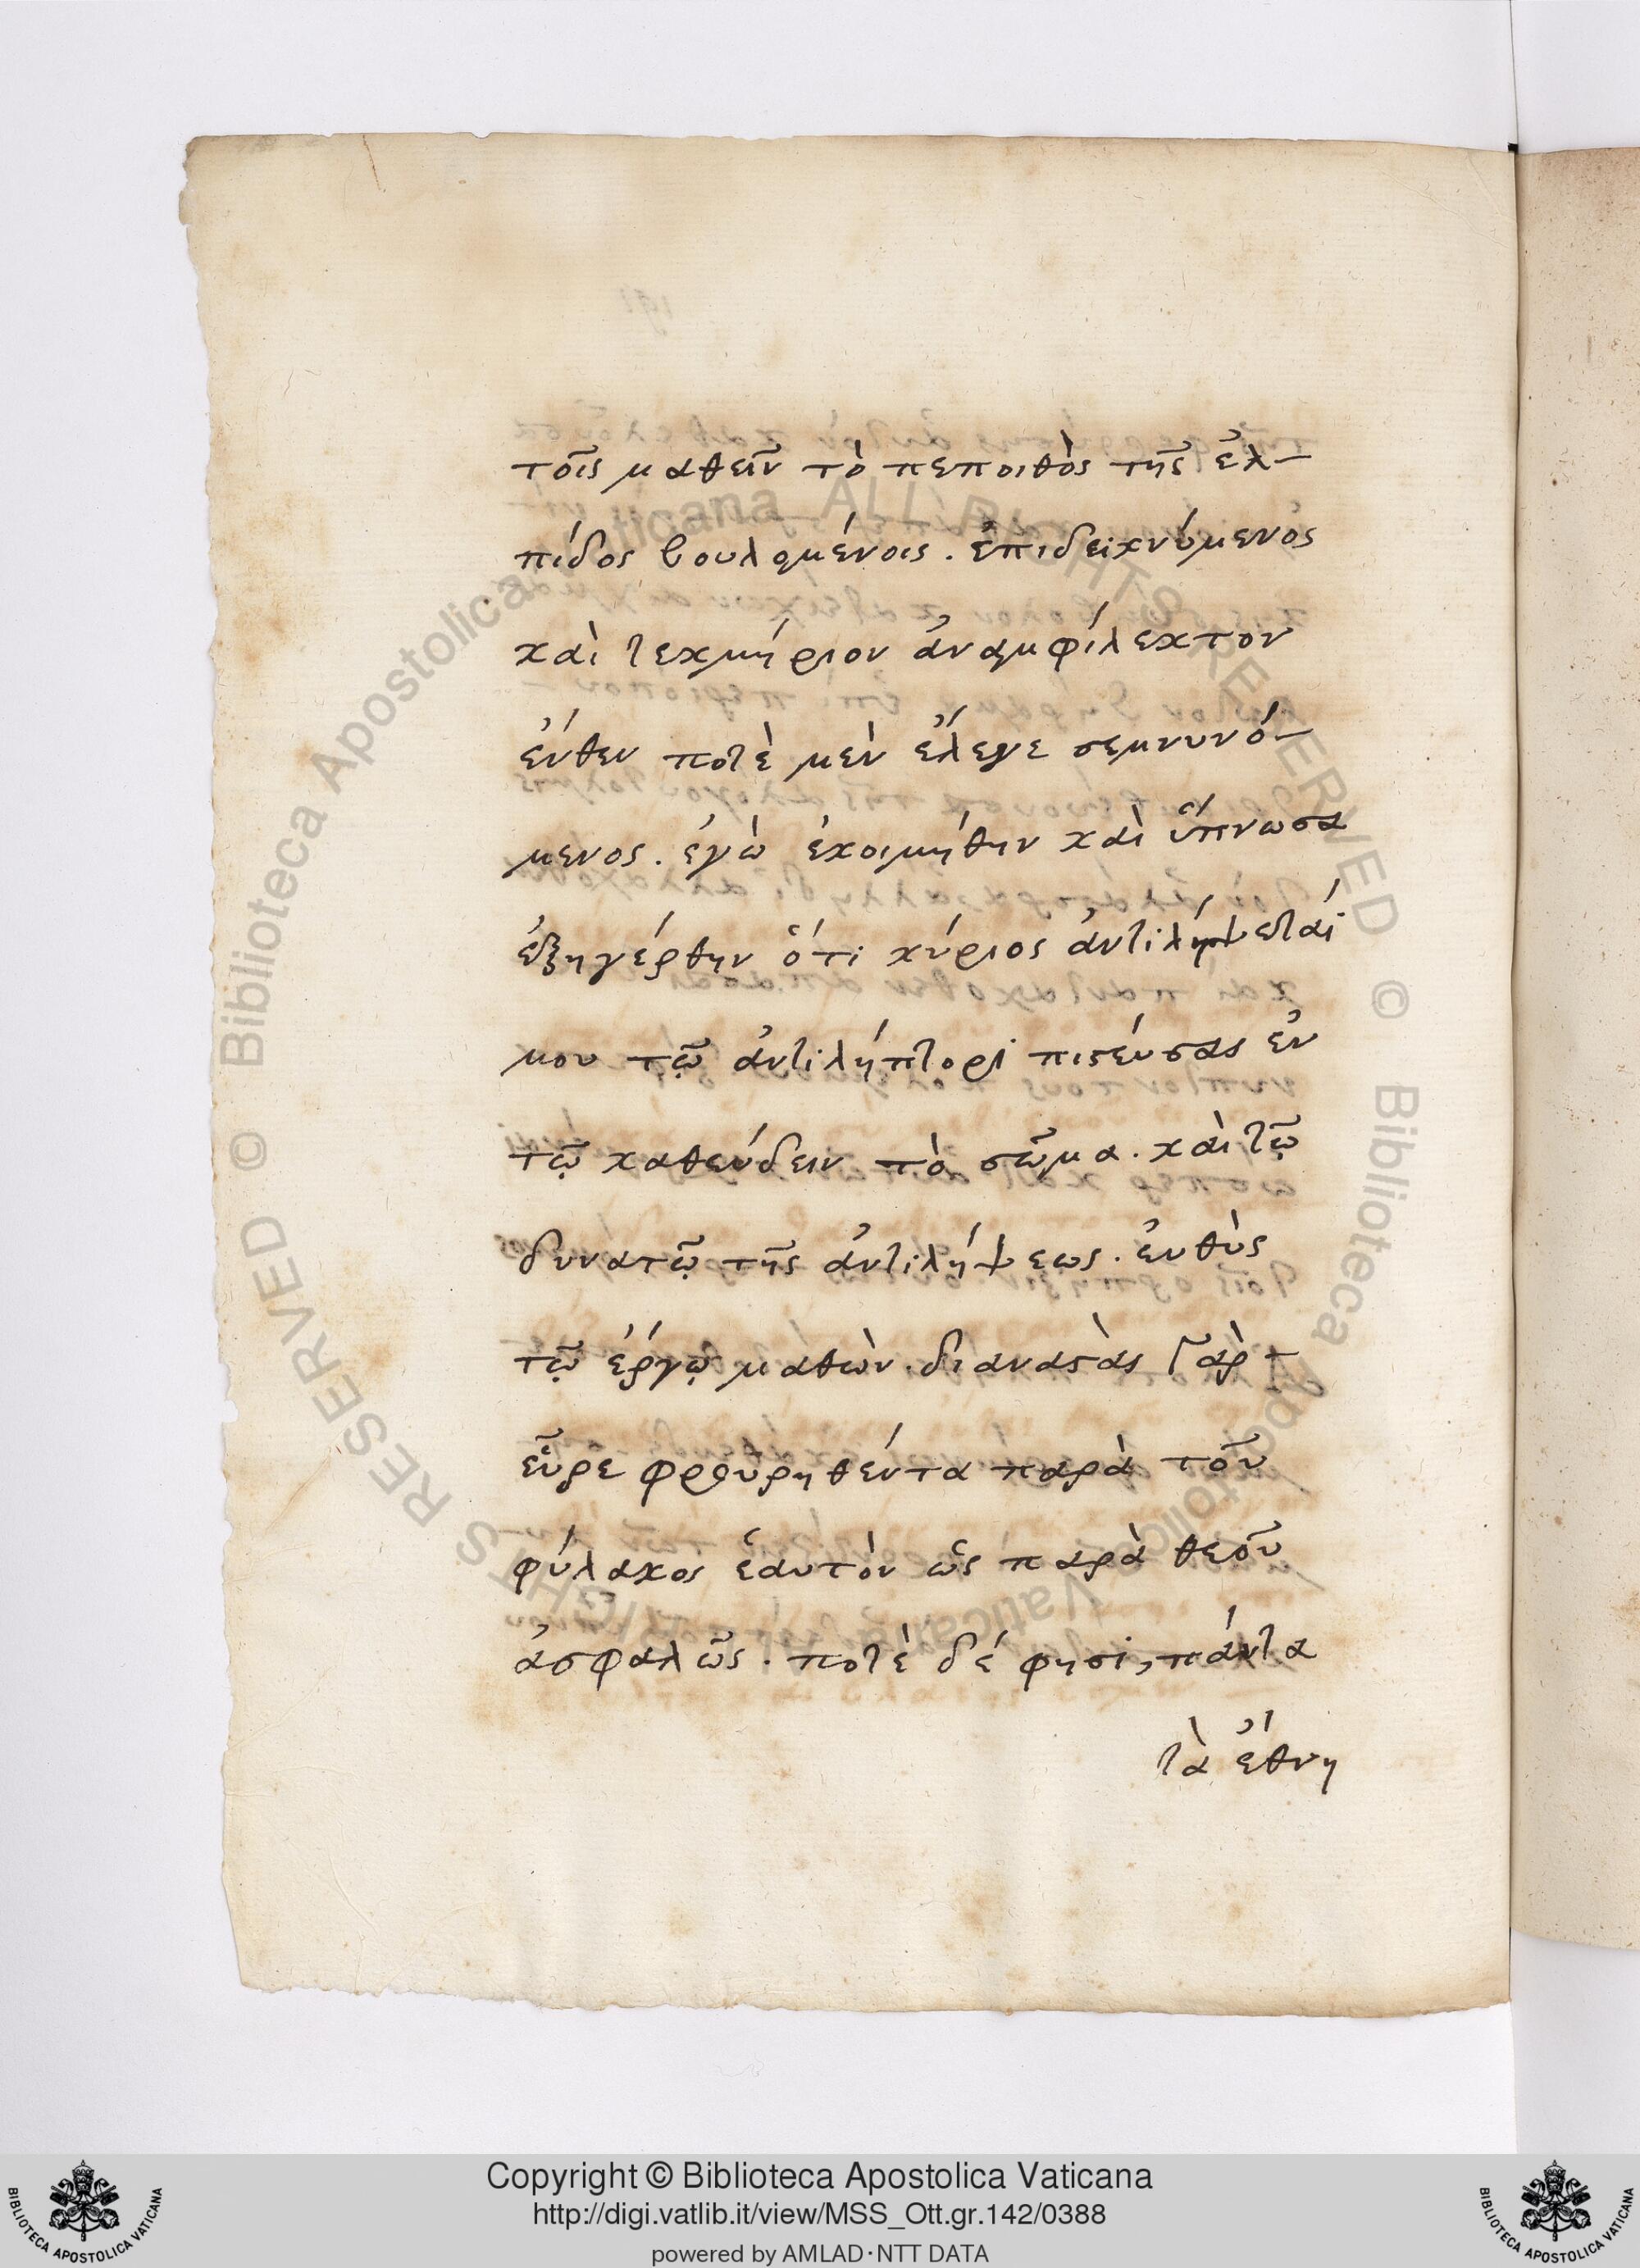 τοῖς μαθεῖν τὸ πεποιθὸς τῆς ἐλ-
πίδος βουλομένοις. ἐπιδεικνύμενος
καὶ τεκμήριον ἀναμφίλεκτον
ἔνθεν ποτὲ μὲν ἔλεγε σεμνυνό-
μενος. ἐγὼ ἐκοιμήθην καὶ ὕπνωσα
ἐξηγέρθην ὅτι κύριος ἀντιλήψεταί
μου τῷ ἀντιλήπτορι πιστεύσας ἐν
τῷ καθεύδειν τὸ σῶμα. καὶ τῷ
δυνατῷ τῆς ἀντιλήψεως. εὐθὺς
τῷ ἔργῳ μαθὼν. διαναστὰς γὰρ -
εὗρε φρουρηθέντα παρὰ τοῦ
φύλακος ἑαυτὸν ὡς παρὰ θεοῦ
ἀσφαλῶς. ποτὲ δέ φησι, πάντα
τὰ ἔθνη
Copyright © Biblioteca Apostolica Vaticana
http://digi.vatlib.it/view/MSS_Ott.gr.142/0388
powered by AMLAD·NTT DATA
BIBLIOTECA APOSTOLICA VATICANA
BIBLIOTECA APOSTOLICA VATICANA